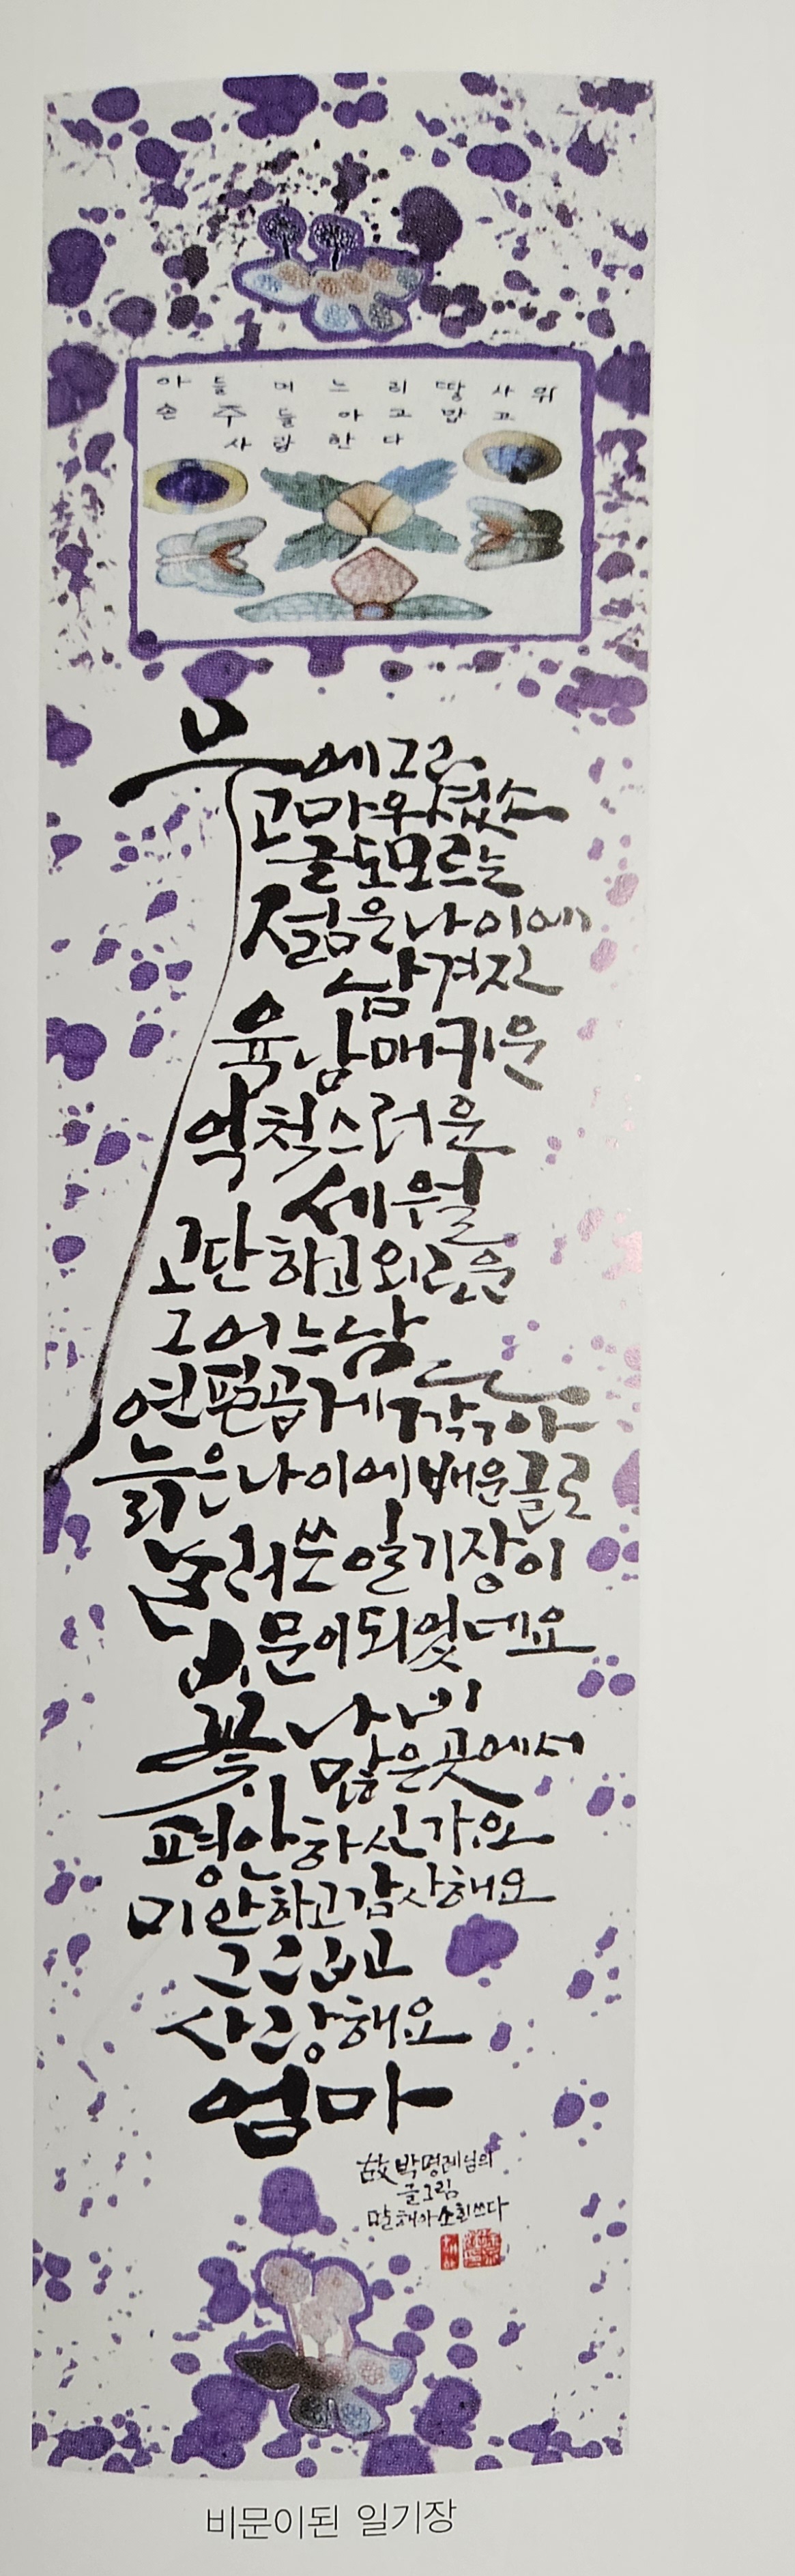 아들 며느리 딸 사위
손주들아 고맙고
사랑한다
무에 그리
고마우셨소
글도 모르는
젊은 나이에
남겨진
육남매 키운
억척스러운
세월
고단하고 외로운
그 어느 날
연필 곱게 깎아
늙은 나이에 배운 글로
눌러쓴 일기장이
비문이 되었네요
꽃 나비
많은 곳에서
평안하신가요
미안하고 감사해요
그립고
사랑해요
엄마
故 박명례님의
글 그림
쓰다
비문이된 일기장